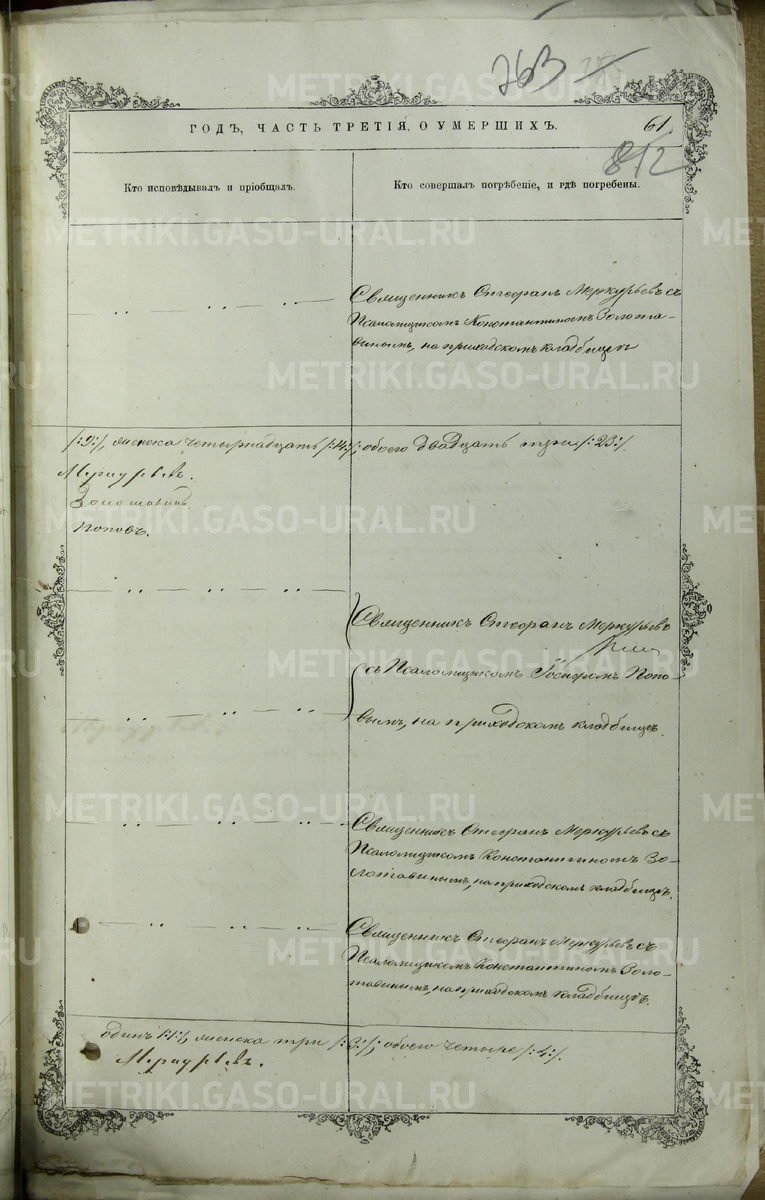 763
ГОДЪ, ЧАСТЬ ТРЕТІЯ, О УМЕРШИХЪ.
61.
812
Кто исповѣдывалъ и пріобщалъ.
Кто совершалъ погрѣбеніе, и гдѣ погребены.
Священникъ Стефанъ Меркурьевъ съ
Псаломщикомъ Константиномъ Золота-
винымъ, на приходскомъ кладбищѣ
/:9:/, женска четырнадцать /:14:/; обоего двадцать три /:23:/.
Меркурьевъ.
Золотавинъ
Поповъ.
Священникъ Стефанъ Меркурьевъ
съ Псаломщикомъ Іосифомъ Попо-
вымъ, на приходскомъ кладбищѣ.
Священникъ Стефанъ Меркурьевъ съ
Псаломщикомъ Константиномъ Зо-
лотавинымъ, на приходскомъ кладбищѣ.
Священникъ Стефанъ Меркурьевъ съ
Псаломщикомъ Константиномъ Золо-
тавинымъ, на приходскомъ кладбищѣ.
одинъ /:1:/, женска три /:3:/; обоего четыре /:4:/.
Меркурьевъ.
METRIKI.GASO-URAL.RU